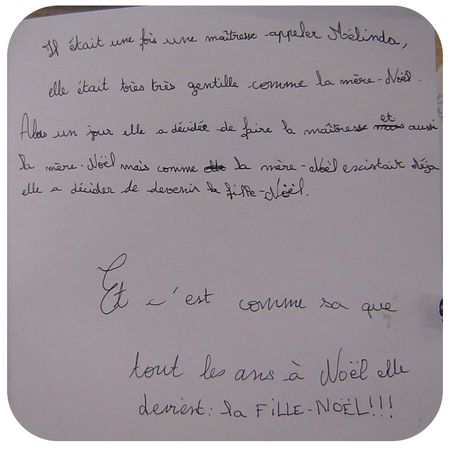 Il était une fois une maîtresse appeler Mélinda,
elle était très très gentille comme la mère-Noël.
Alors un jour elle a décidée de faire la maîtresse et aussi
la mère-Noël mais comme la mère-Noël existait déja
elle a décider de devenir la fille-Noël.
Et c'est comme sa que
tout les ans à Noël elle
devient: la FiLLE-NOËL!!!